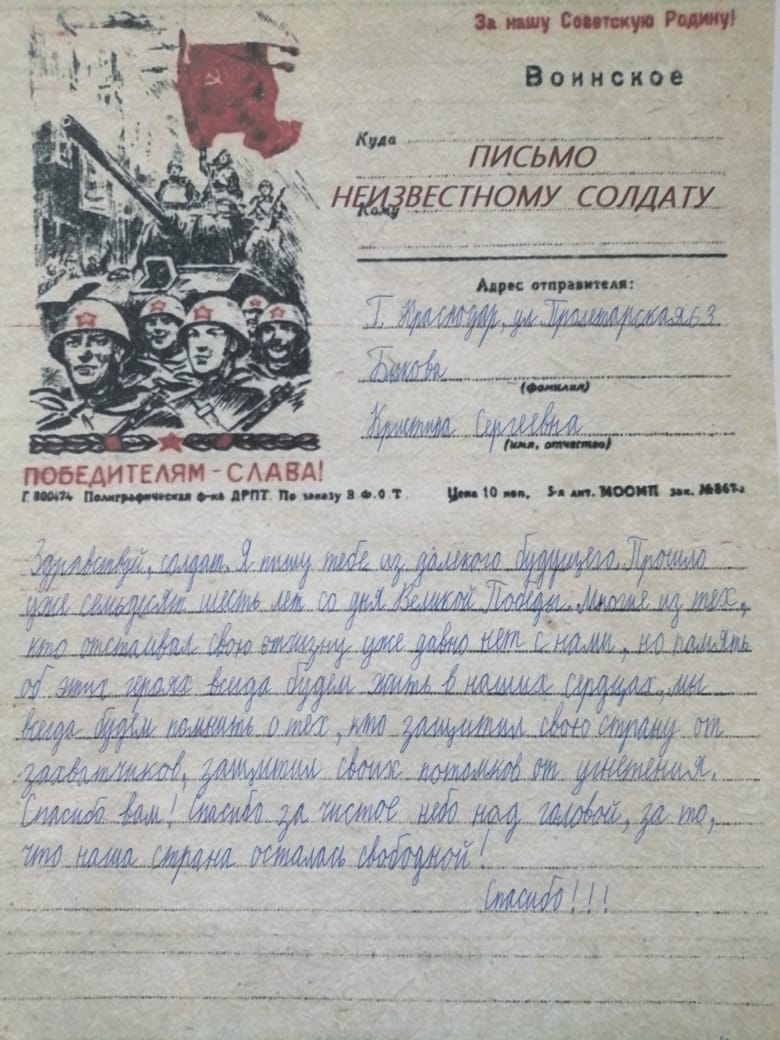 За нашу Советскую Родину!
Воинское
Куда
ПИСЬМО
НЕИЗВЕСТНОМУ СОЛДАТУ
Кому
Адрес отправителя:
Г. Краснодар, ул. Пролетарская 63
Быкова
(фамилия)
Кристина Сергеевна
(имя, отчество)
ПОБЕДИТЕЛЯМ - СЛАВА!
Г 800474 Полиграфическая ф-ка ДРПТ. По заказу В.Ф.О Т. Цена 10 коп. 5-я лит. МООМП зак. №867-а
Здравствуй, солдат. Я пишу тебе из далекого будущего. Прошло
уже семьдесят шесть лет со дня Великой Победы. Многие из тех,
кто отстаивал свою отчизну уже давно нет с нами, но память
об этих героях всегда будем жить в наших сердцах, мы
всегда будем помнить о тех, кто защитил свою страну от
захватчиков, защитил своих потомков от угнетения.
Спасибо вам! Спасибо за чистое небо над головой, за то,
что наша страна осталась свободной!
Спасибо!!!